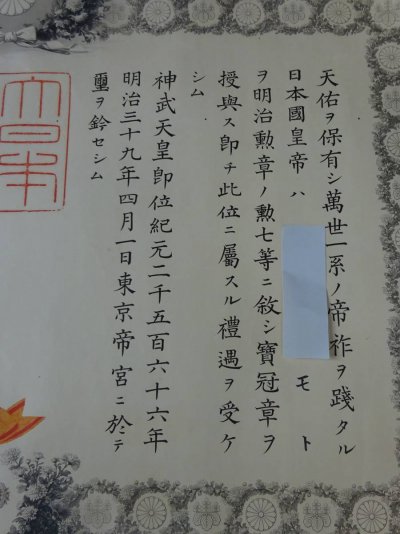 天佑ヲ保有シ萬世一系ノ帝祚ヲ踐タル
日本國皇帝ハ モト
ヲ明治勲章ノ勲七等ニ敘シ寶冠章ヲ
授與ス卽チ此位ニ屬スル禮遇ヲ受ケ
シム
神武天皇卽位紀元二千五百六十六年
明治三十九年四月一日東京帝宮ニ於テ
璽ヲ鈐セシム